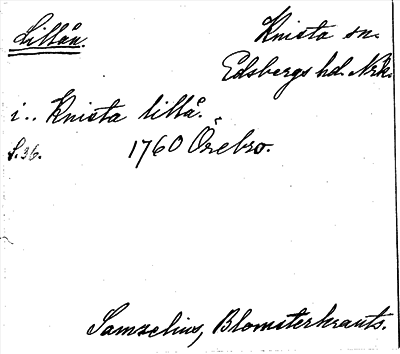 Lillån.
Knista sn.
Edsbergs hd. Nrk.
i.. Knista lillå.
S.36. 1760 Örebro.
Samzelius, Blomsterkrants.